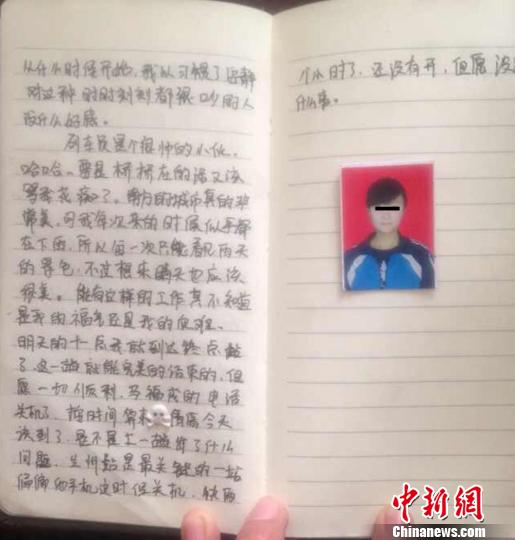 从什么时候开始，我从习惯了安静
对这种时时刻刻都很吵的人
没什么好感。
列车员是个很帅的小伙，
哈哈。要是桥桥在的话又该
骂我花痴了。南方的城市真的非
常美，可我每次来的时候似乎都
在下雨，所以每一次只能看见雨天
的景色，不过想来晴天也应该
很美。能有这样的工作真不知道
是我的福气还是我的灾难。
明天的十点我就到达终点站
了，这一趟就能完美的结束的，但
愿一切顺利，马福成的电话
关机了，按时间算来 今天
该到了，是不是上一趟出了什么
问题，兰州站是最关键的一站
偏偏 手机这时候关机，快两
个小时了，还没有开，但愿 没
什么事。
中新网
Chinanews.com